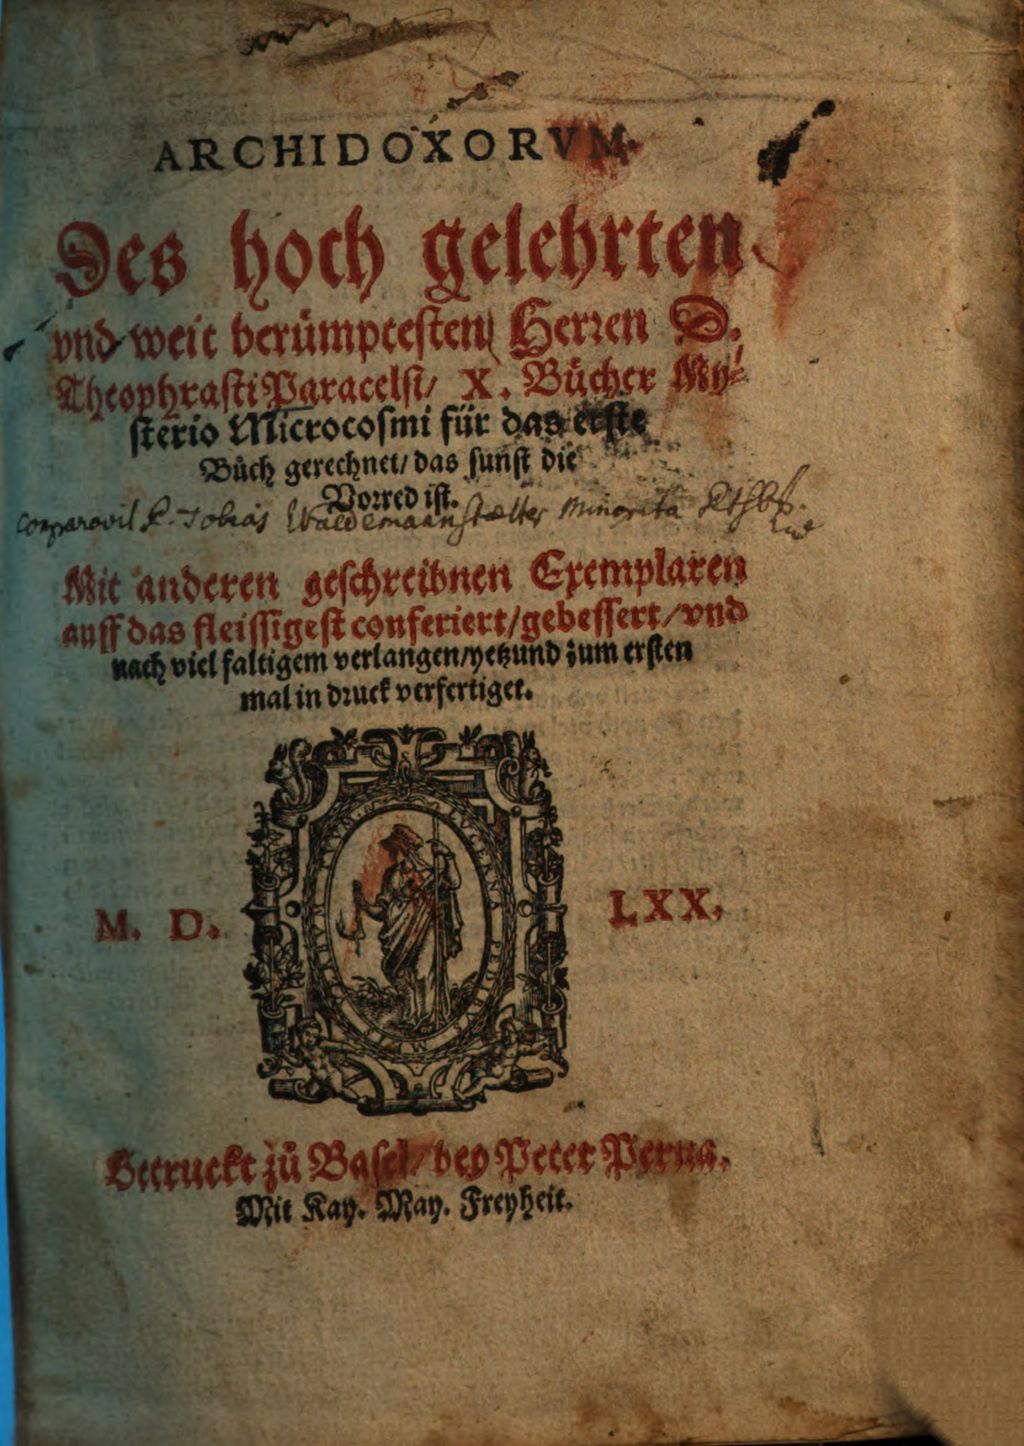 ARCHIDOXORVM.
Des hoch gelehrten
vnd weit berümptesten Herren D.
Theophrasti Paracelsi/ X. Bücher My-
sterio Microcosmi für das erste
Büch gerechnet/ das sunst die
Vorred ist.
Tobias Minorita
Mit anderen geschreibnen Exemplaren
auff das fleissigest conferiert/gebessert/vnd
nach viel faltigem verlangen/yetzund zum ersten
mal in druck verfertiget.
M. D. LXX.
Getruckt zů Basel/ bey Peter Perna.
Mit Kay. May. Freyheit.